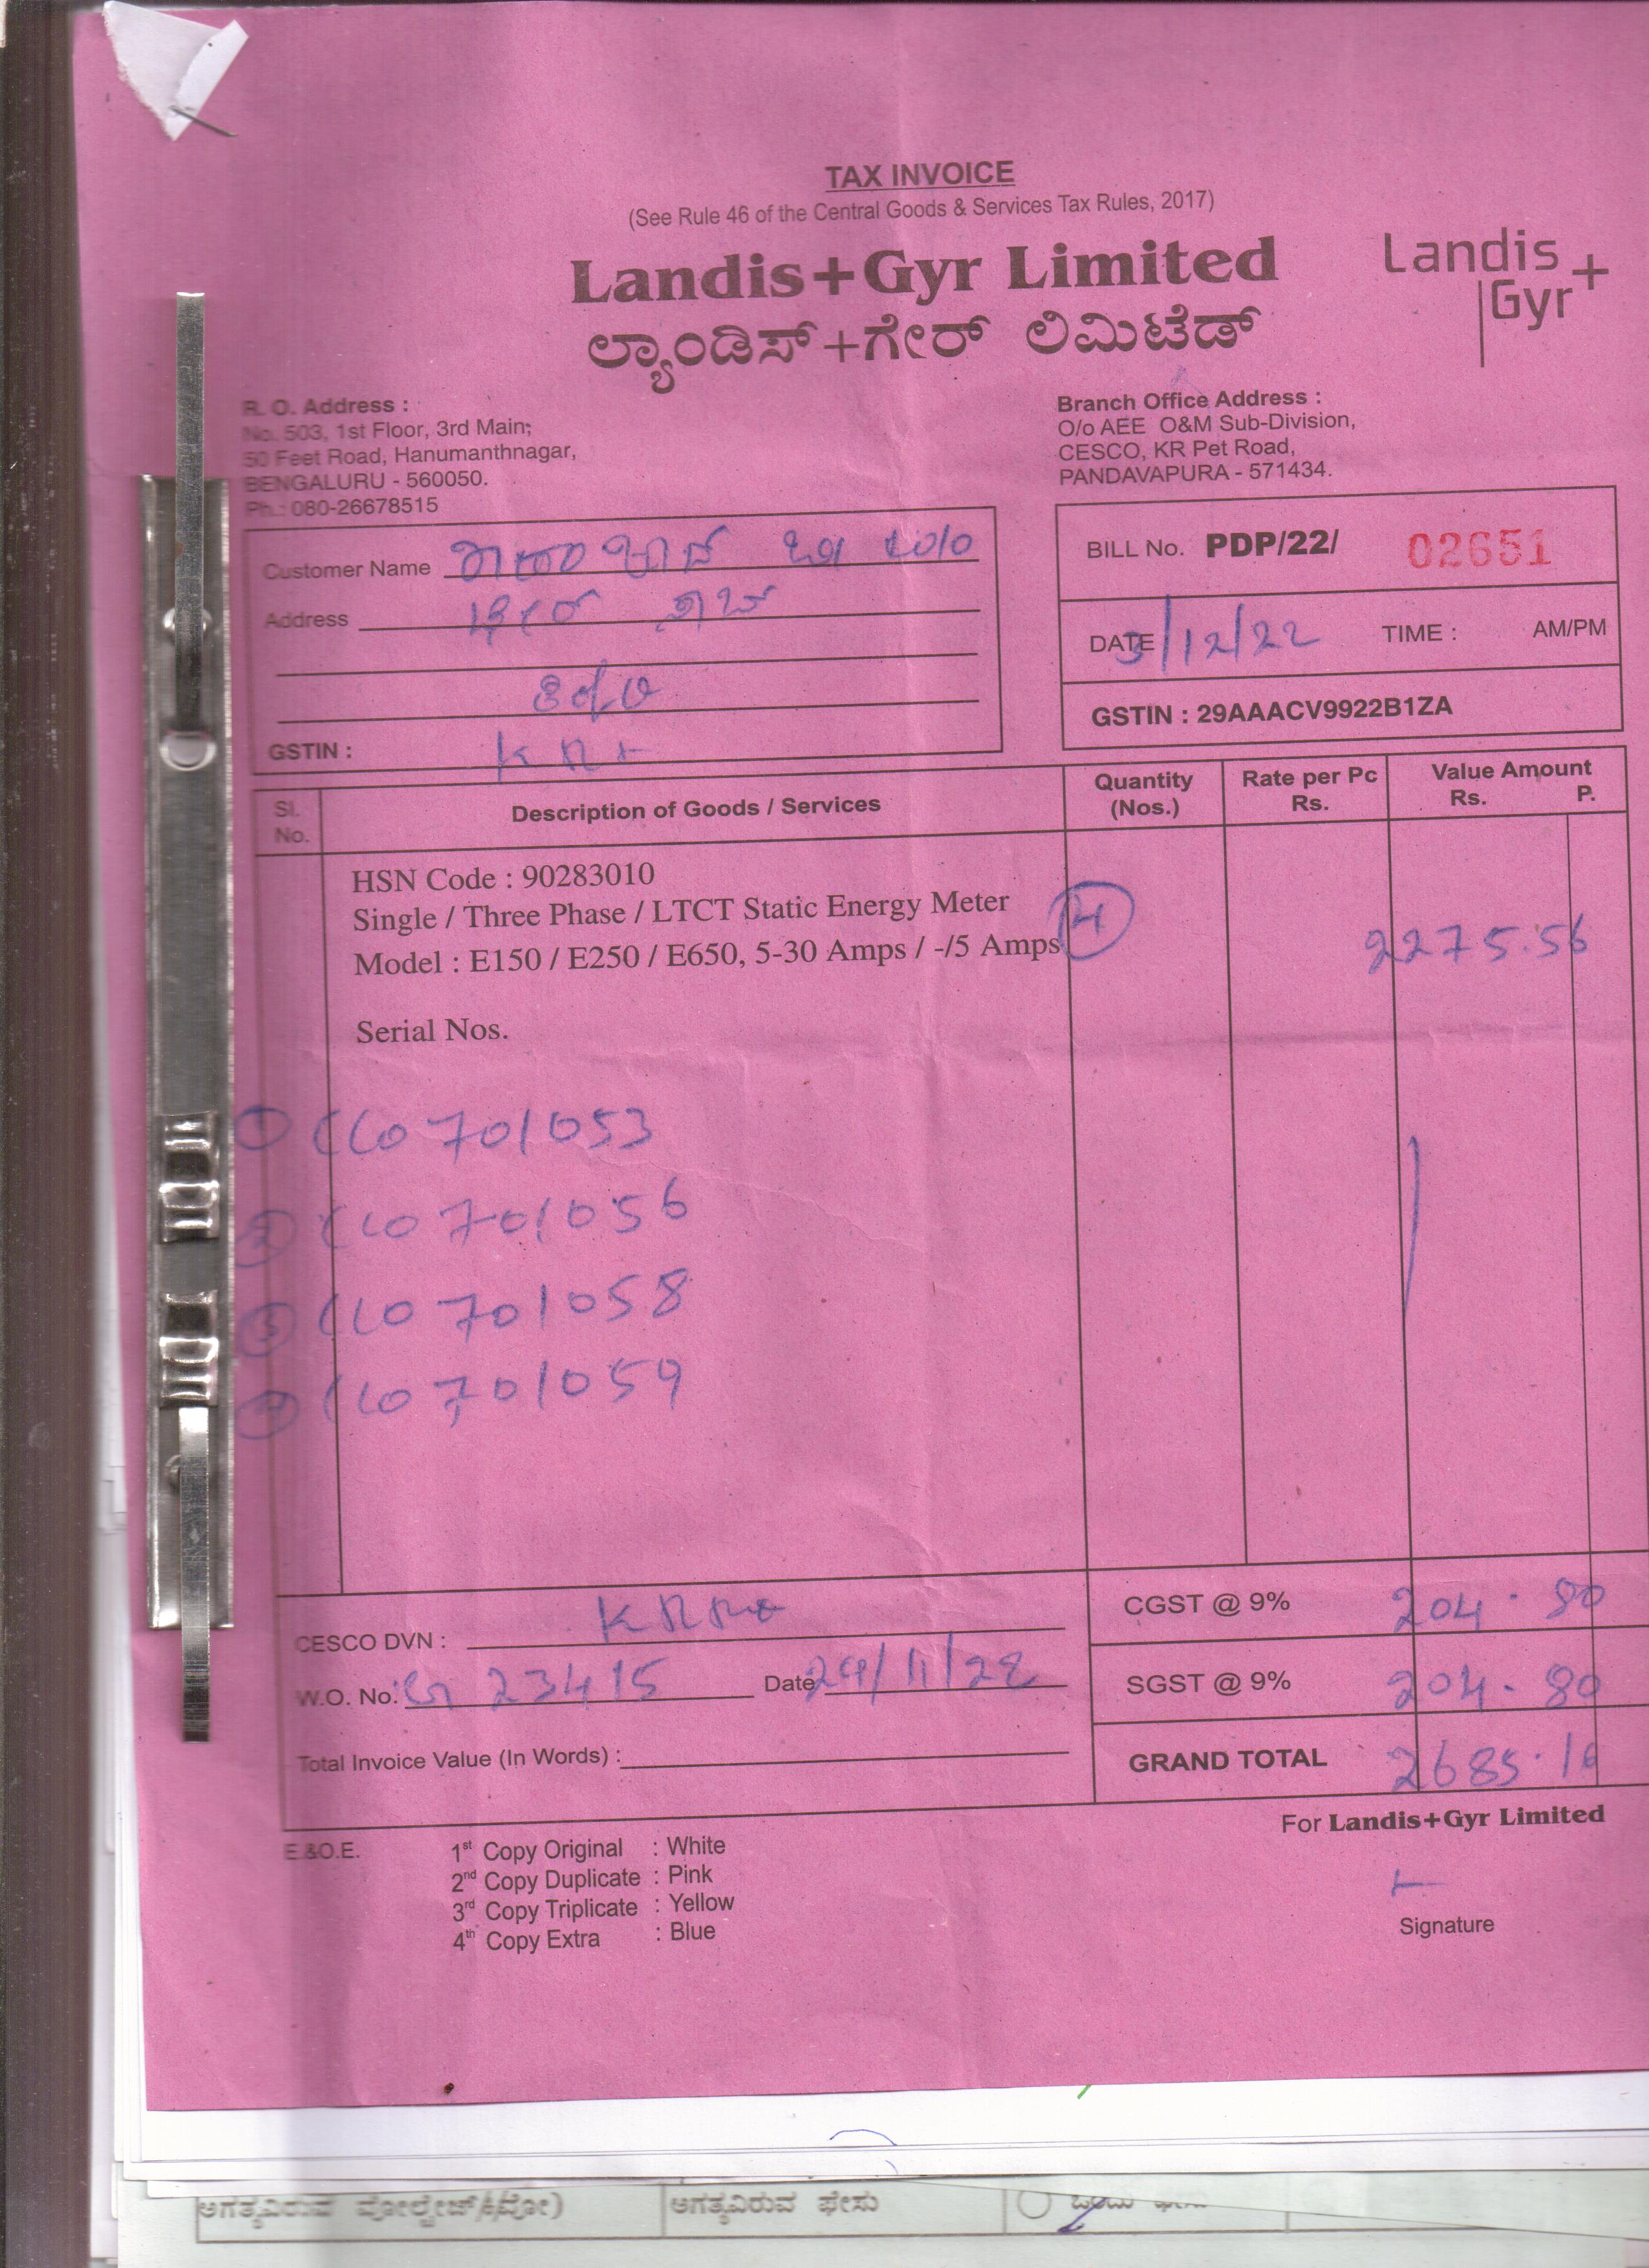 TAX INVOICE
(See Rule 46 of the Central Goods & Services Tax Rules, 2017)
Landis+Gyr Limited
ಲ್ಯಾಂಡಿಸ್+ಗೇರ್ ಲಿಮಿಟೆಡ್
Landis
Gyr+
R. O. Address :
No. 503, 1st Floor, 3rd Main;
50 Feet Road, Hanumanthnagar,
BENGALURU - 560050.
Ph.: 080-26678515
Branch Office Address :
O/o AEE O&M Sub-Division,
CESCO, KR Pet Road,
PANDAVAPURA - 571434.
Customer Name
Address
GSTIN :
BILL No. PDP/22/ 02651
DATE 3/12/22 TIME : AM/PM
GSTIN : 29AAACV9922B1ZA
Sl. No. Description of Goods / Services Quantity (Nos.) Rate per Pc Rs. Value Amount Rs. P.
HSN Code : 90283010
Single / Three Phase / LTCT Static Energy Meter
Model : E150 / E250 / E650, 5-30 Amps / -/5 Amps 4 2275.56
Serial Nos.
1 CL0701053
2 CL0701056
3 CL0701058
4 CL0701059
CESCO DVN :
W.O. No: 23415 Date 24/11/22
Total Invoice Value (In Words) :
CGST @ 9% 204.80
SGST @ 9% 204.80
GRAND TOTAL 2685.16
For Landis+Gyr Limited
Signature
E.&O.E.
1st Copy Original : White
2nd Copy Duplicate : Pink
3rd Copy Triplicate : Yellow
4th Copy Extra : Blue
ಅಗತ್ಯವಿರುವ ಅಗತ್ಯವಿರುವ ಫೇಸು